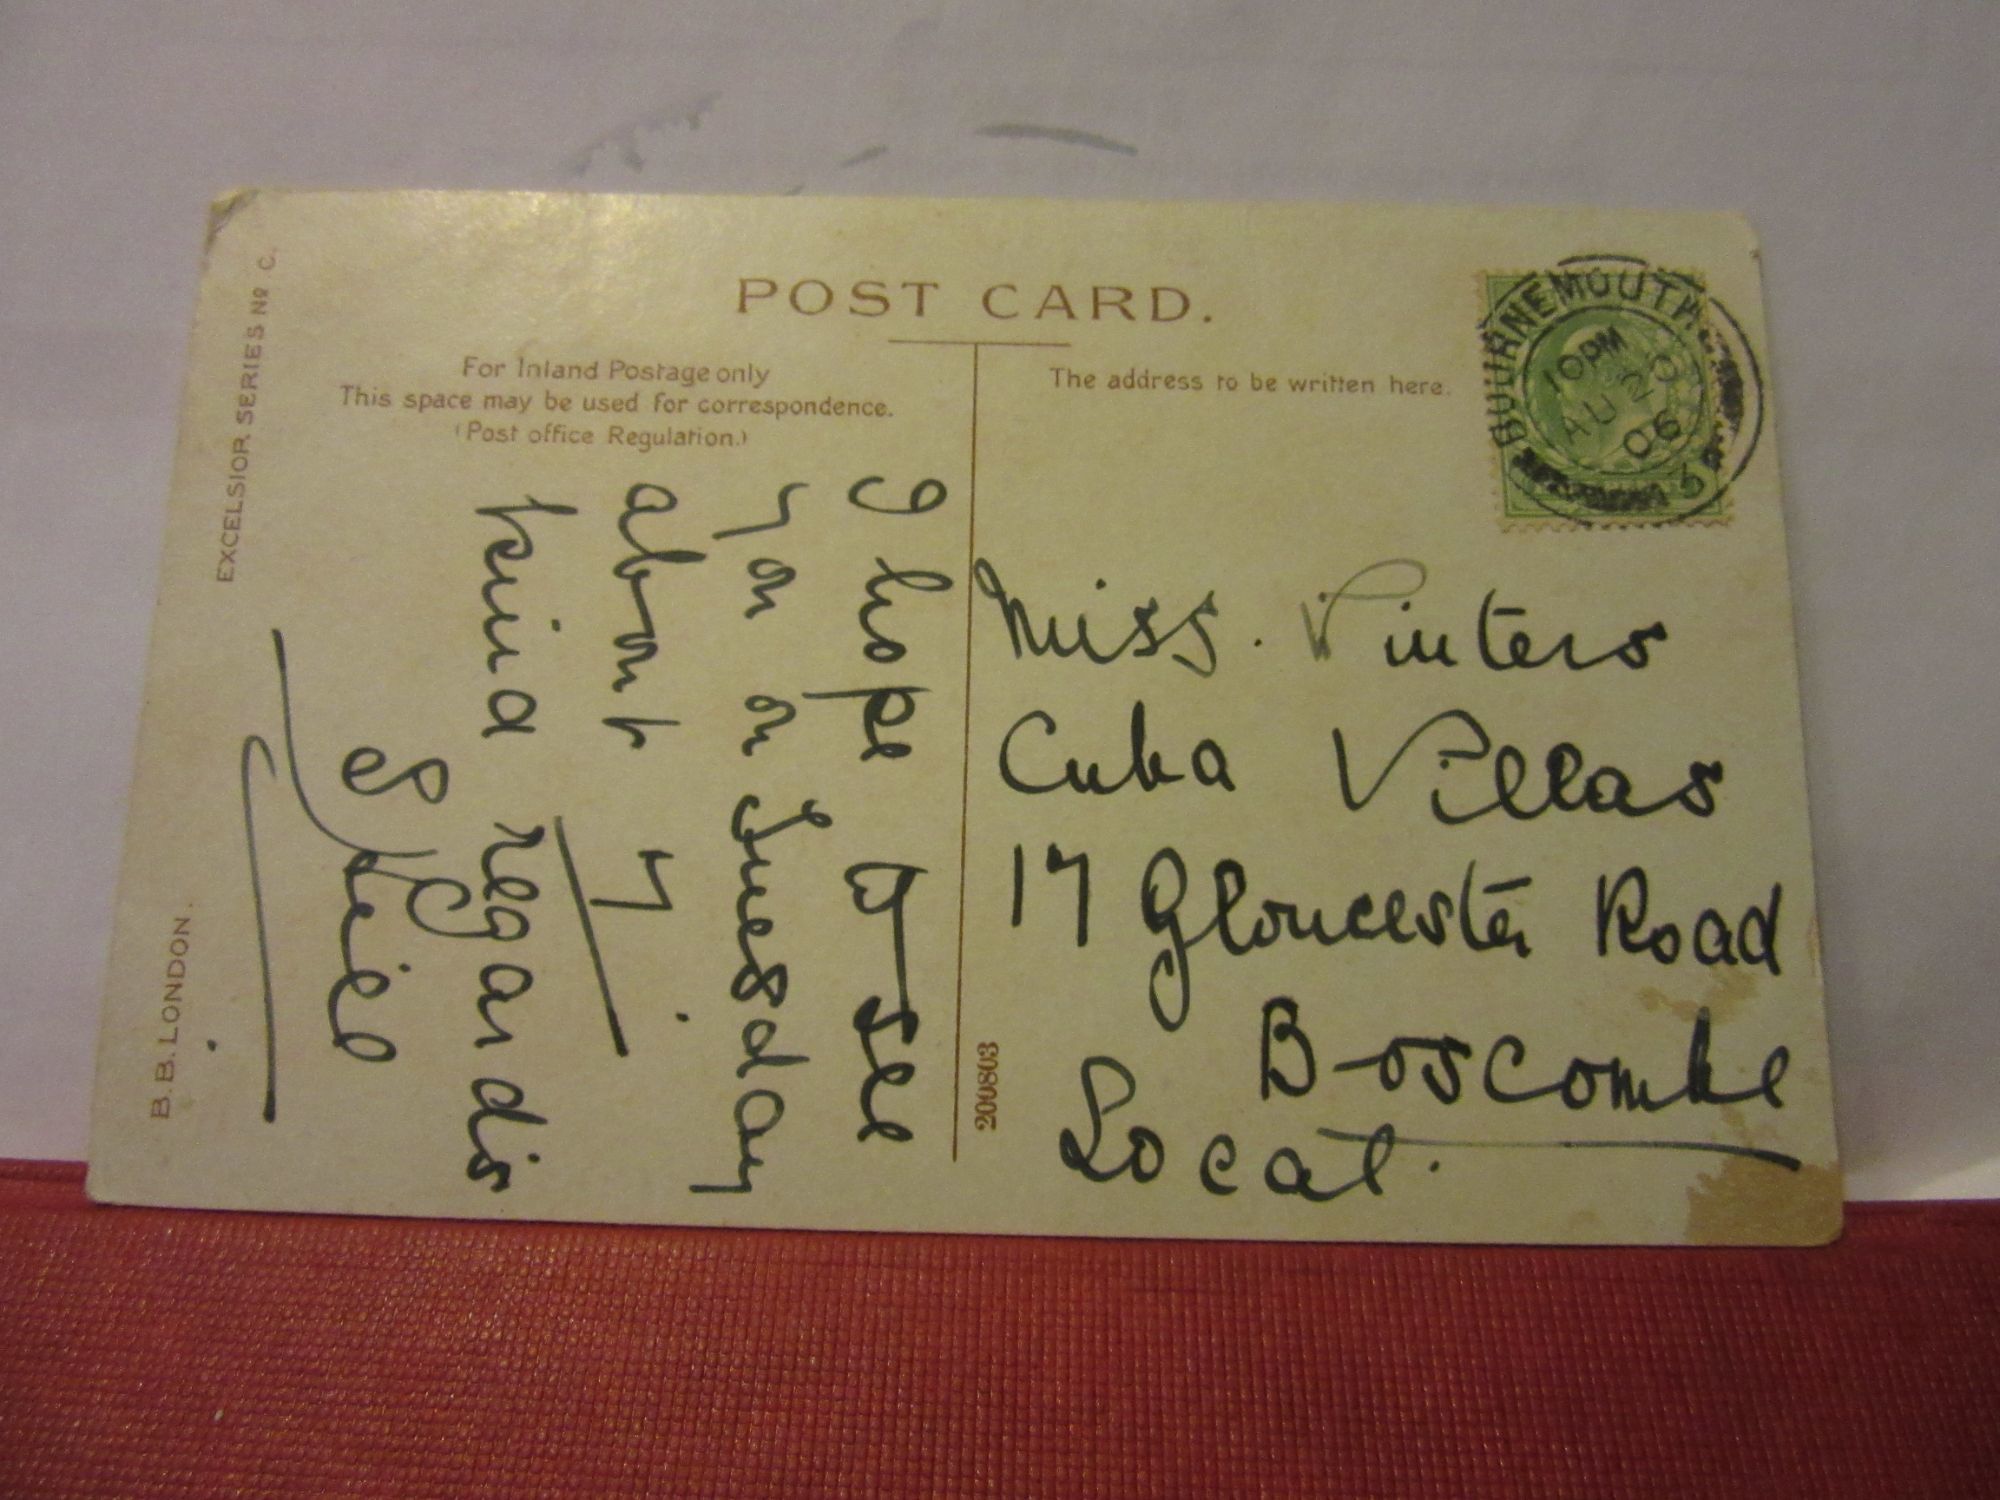 POST CARD.
For Inland Postage only
This space may be used for correspondence.
(Post office Regulation.)
The address to be written here.
EXCELSIOR SERIES No C.
B. B. LONDON.
200803
BOURNEMOUTH
10 PM
AU 20
06
3
I hope to see
you on Tuesday
about 7.
Kind regards
Miss.
Cuba Villas
17 Gloucester Road
Boscombe
Local.